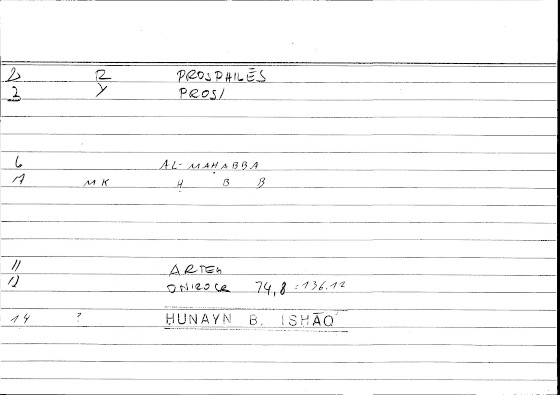 2 R PROSPHILĒS
3 Y PROS/
6 AL-MAḤABBA
7 MK Ḥ B B
11 ARTEM
12 ONIROCR 74,8 = 136.12
14 ? HUNAYN B. ISHĀQ